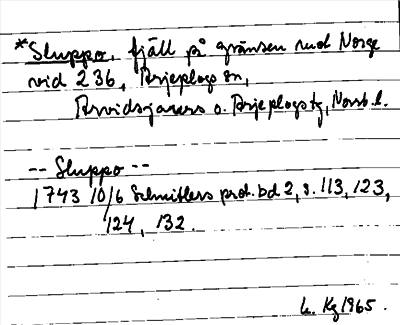 *Sluppo, fjäll på gränsen mot Norge
vid 236, Arjeplogs sn,
Arvidsjaurs o. Arjeplogs tg, Norrb. l.
-- Sluppo --
1743 10/6 Schnitlers prot. bd 2, s. 113, 123,
124, 132.
Kg 1965.